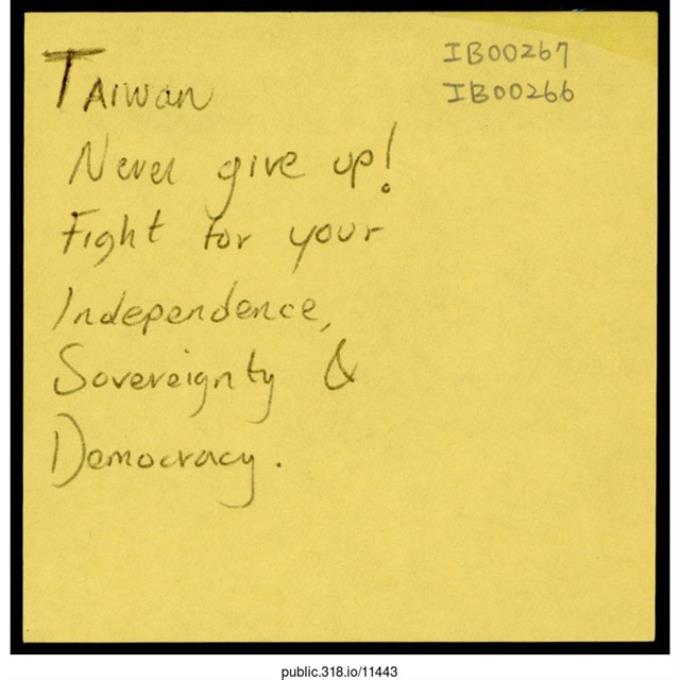 IB00267
IB00266
TAIWAN
Never give up!
Fight for your
Independence,
Sovereignty &
Democracy.
public.318.io/11443